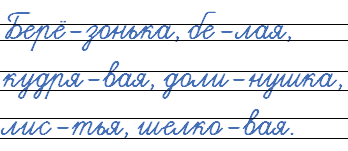 Берё-зонька, бе-лая,
кудря-вая, доли-нушка,
лис-тья, шелко-вая.